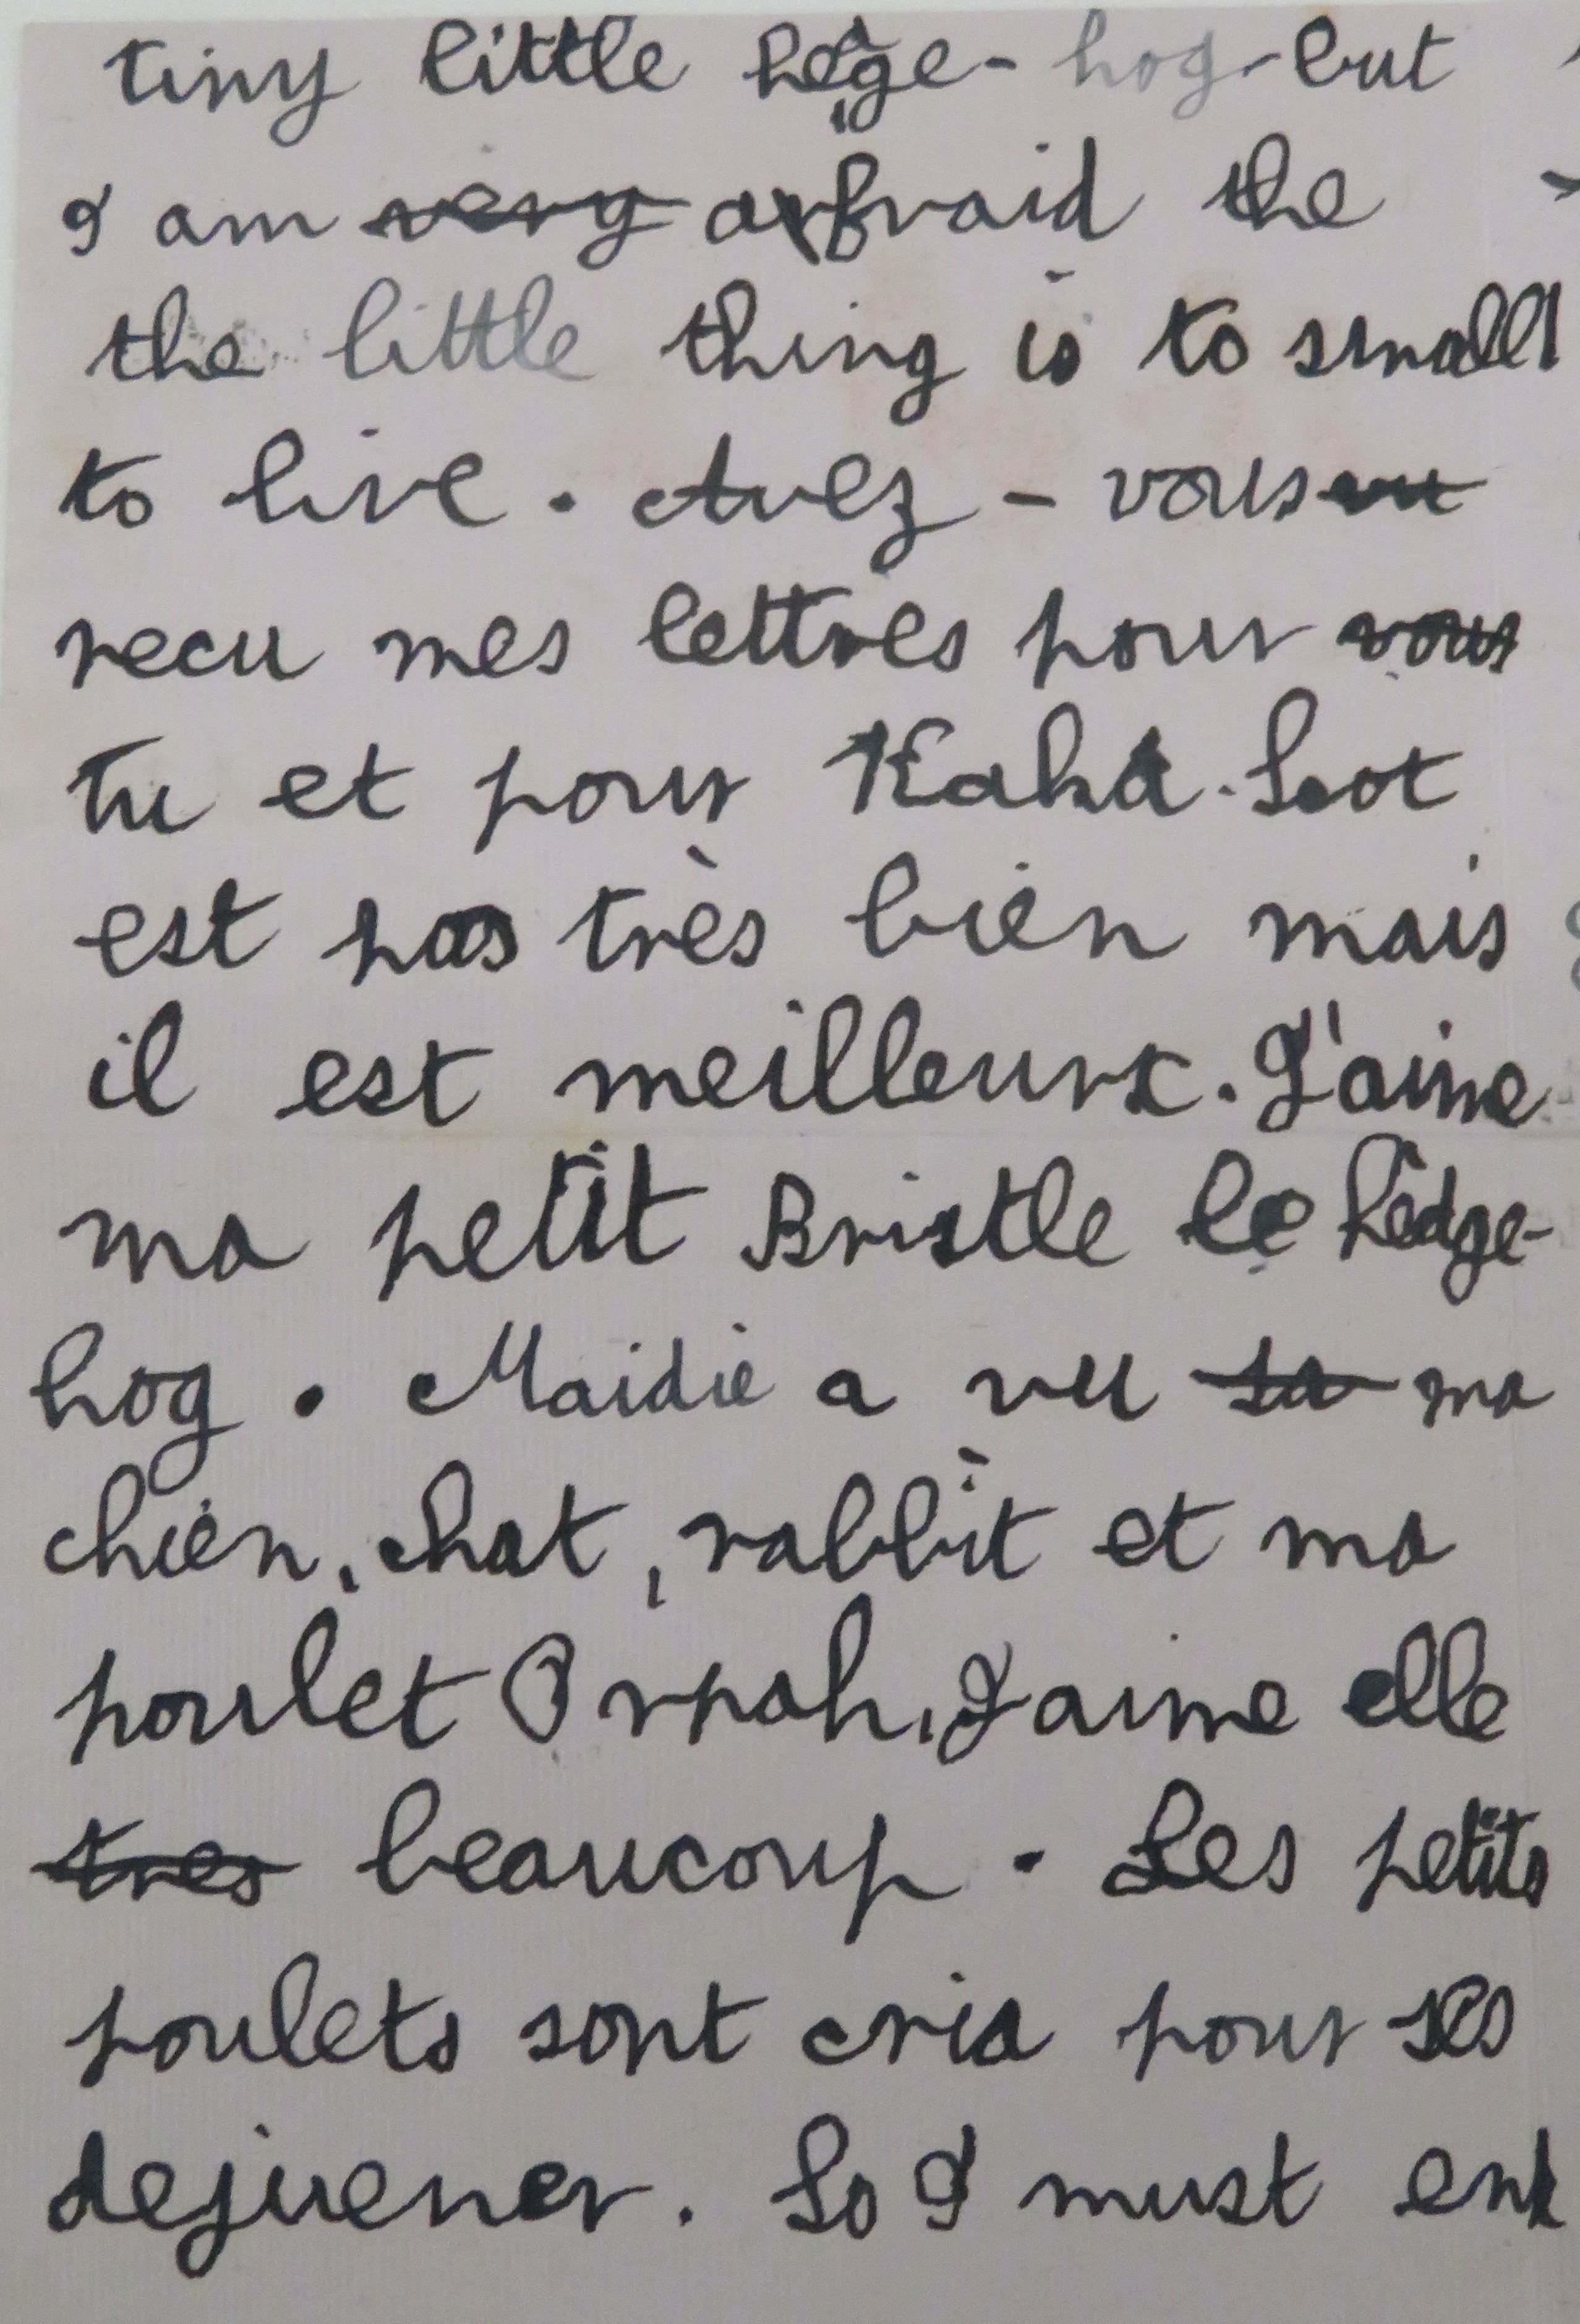 tiny little hedge-hog-but
I am very afraid the
the little thing is to small
to live. Avez-vous vu
recu mes lettres pour vous
tu et pour Kaka. Scot
est pas très bien mais
il est meilleurx. J'aime
ma petit Bristle le hedge-
hog. Maidie a vu sa ma
chien, chat, rabbit et ma
poulet Orpah, J'aime elle
tres beaucoup. Les petits
poulets sont cria pour ses
dejuener. So I must end